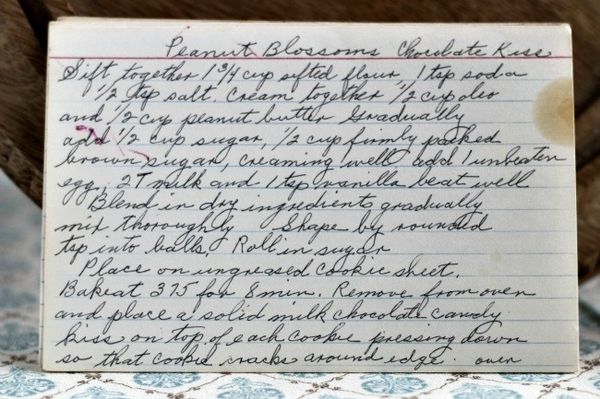 Peanut Blossoms Chocolate Kiss
Sift together 1 3/4 cup sifted flour, 1 tsp soda
1/2 tsp salt. Cream together 1/2 cup oleo
and 1/2 cup peanut butter Gradually
add 1/2 cup sugar, 1/2 cup firmly packed
brown sugar, creaming well add 1 unbeaten
egg, 2T milk and 1 tsp vanilla beat well
Blend in dry ingredients gradually
mix thoroughly Shape by rounded
tsp into balls. Roll in sugar
Place on ungreased cookie sheet.
Bake at 375 for 8 min. Remove from oven
and place a solid milk chocolate candy
kiss on top of each cookie pressing down
so that cookie cracks around edge. over